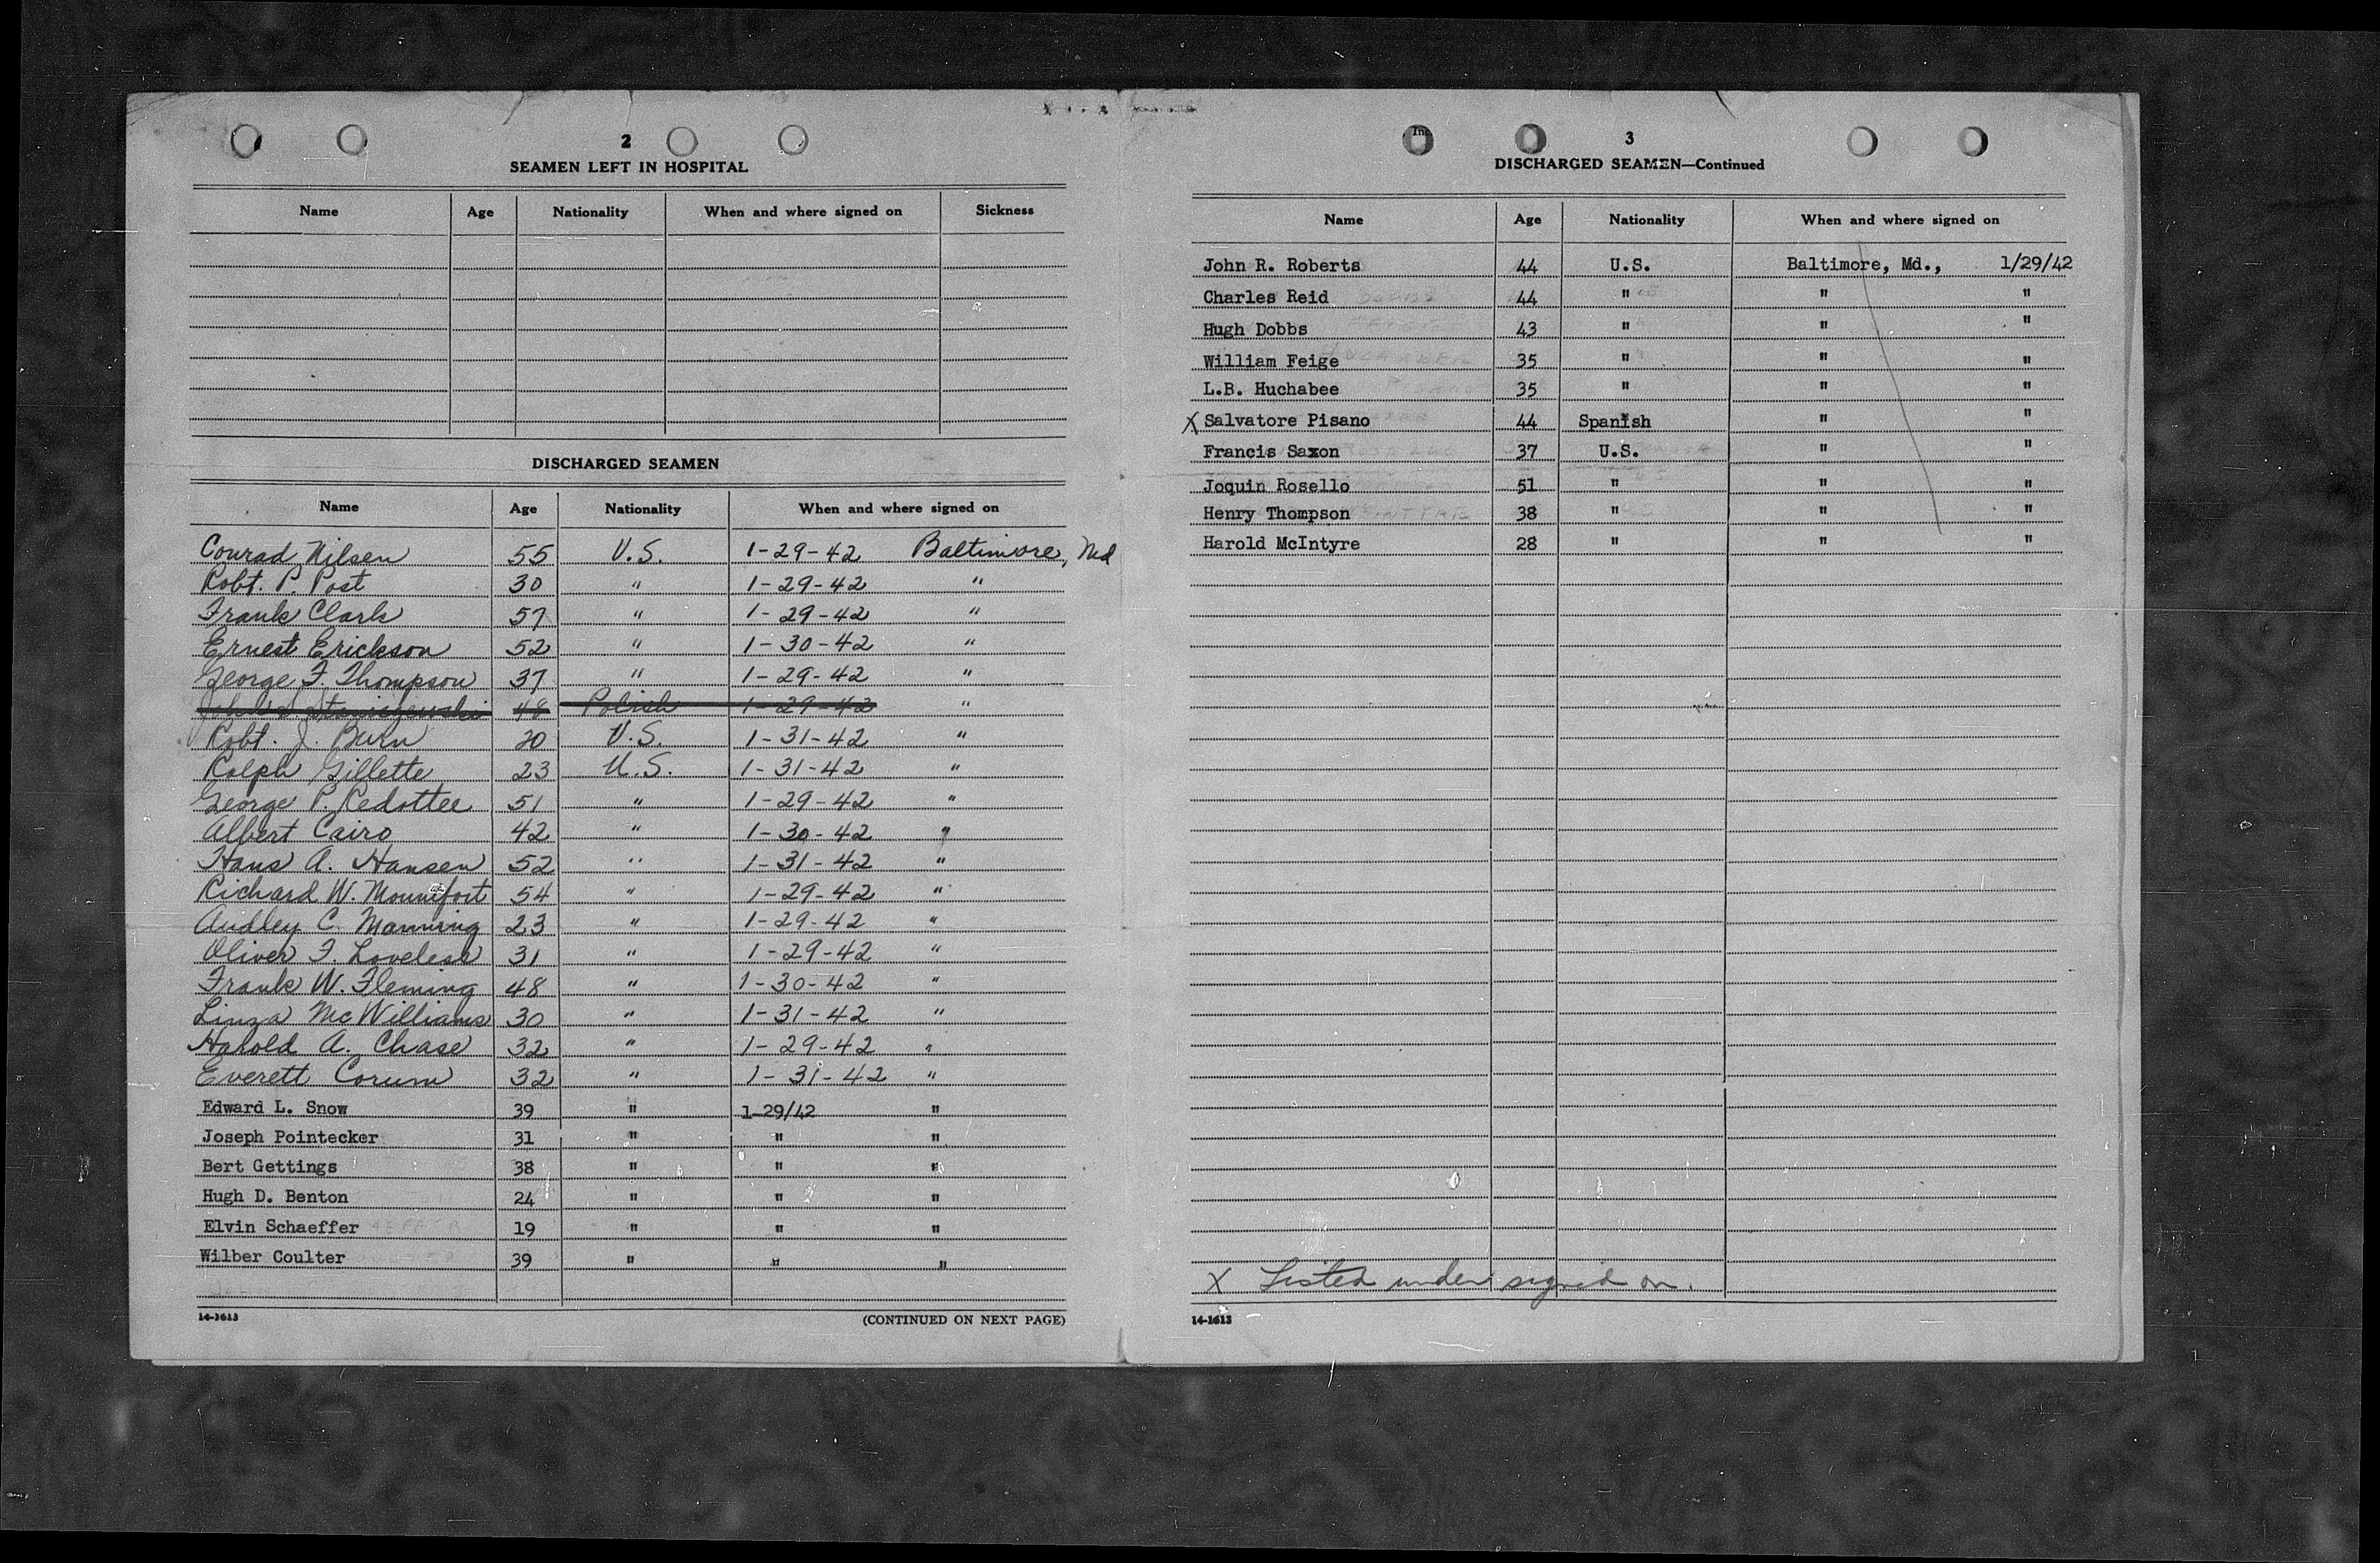 2
SEAMEN LEFT IN HOSPITAL
Name Age Nationality When and where signed on Sickness
DISCHARGED SEAMEN
Name Age Nationality When and where signed on
Conrad Nilsen 55 U.S. 1-29-42 Baltimore, Md
Robt. P. Post 30 " 1-29-42 "
Frank Clark 57 " 1-29-42 "
Ernest Erickson 52 " 1-30-42 "
George F. Thompson 37 " 1-29-42 "
48 Polish 1-29-42 "
Robt. J. Burn 20 U.S. 1-31-42 "
Ralph Gillette 23 U.S. 1-31-42 "
George P. Redottee 51 " 1-29-42 "
Albert Cairo 42 " 1-30-42 "
Hans A. Hansen 52 " 1-31-42 "
Richard W. Mounefort 54 " 1-29-42 "
Audley C. Manning 23 " 1-29-42 "
Oliver F. Loveless 31 " 1-29-42 "
Frank W. Fleming 48 " 1-30-42 "
Linza McWilliams 30 " 1-31-42 "
Harold A. Chase 32 " 1-29-42 "
Everett Corum 32 " 1-31-42 "
Edward L. Snow 39 " 1-29/42 "
Joseph Pointecker 31 " " "
Bert Gettings 38 " " "
Hugh D. Benton 24 " " "
Elvin Schaeffer 19 " " "
Wilber Coulter 39 " " "
14-1613 (CONTINUED ON NEXT PAGE)
3
DISCHARGED SEAMEN—Continued
Name Age Nationality When and where signed on
John R. Roberts 44 U.S. Baltimore, Md., 1/29/42
Charles Reid 44 " " "
Hugh Dobbs 43 " " "
William Feige 35 " " "
L.B. Huchabee 35 " " "
X Salvatore Pisano 44 Spanish " "
Francis Saxon 37 U.S. " "
Joquin Rosello 51 " " "
Henry Thompson 38 " " "
Harold McIntyre 28 " " "
X Listed under signed on.
14-1613